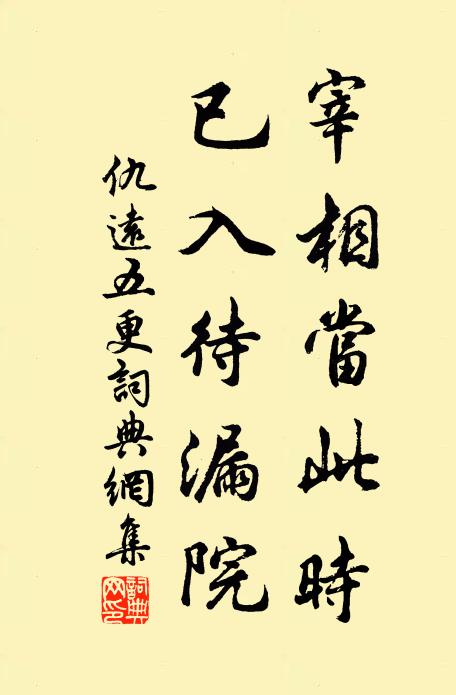 宰相當此時
已入待漏院
仇遠五更詞典網集
詞典網印